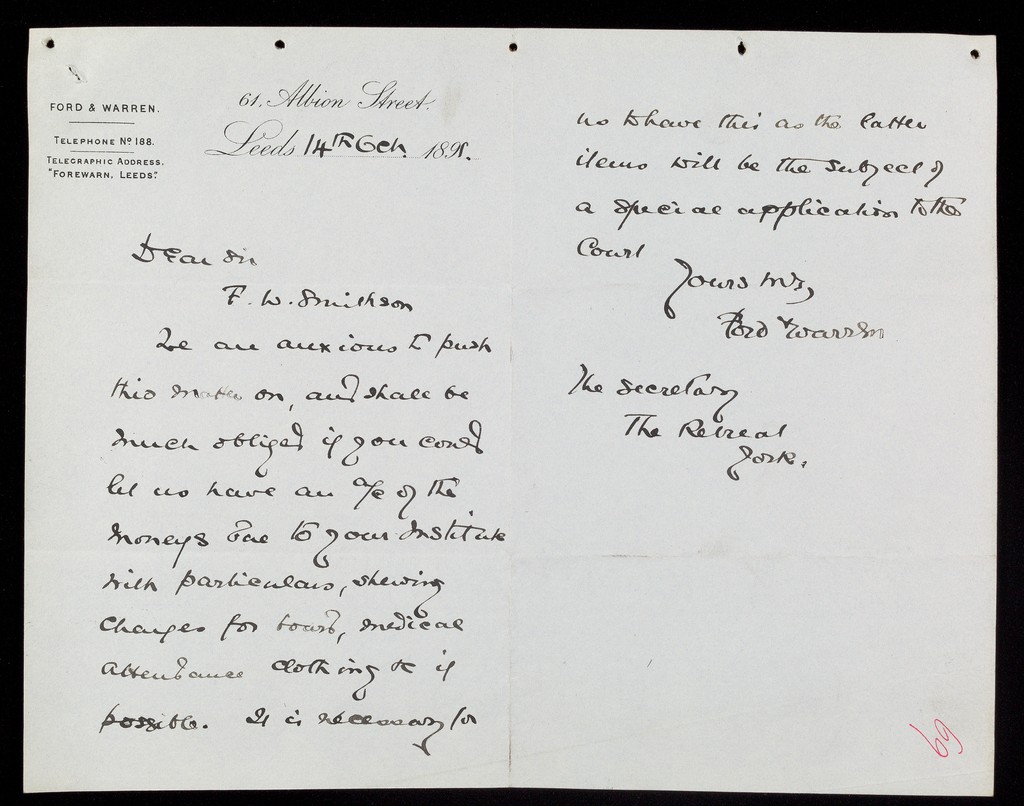 FORD & WARREN.
TELEPHONE No 188.
TELEGRAPHIC ADDRESS,
"FOREWARN, LEEDS."
61, Albion Street.
Leeds 14TH Oct. 1891.
Dear Sir
F. W. Smithson
We are anxious to push
this matter on, and shall be
much obliged if you could
let us have an a/c of the
moneys due to your Institute
with particulars, shewing
charges for board, medical
attendance clothing &c if
possible. It is necessary for
us to have this as the latter
items will be the subject of
a special application to the
Court
Yours try,
Ford & Warren
The Secretary
The Retreat
York.
69